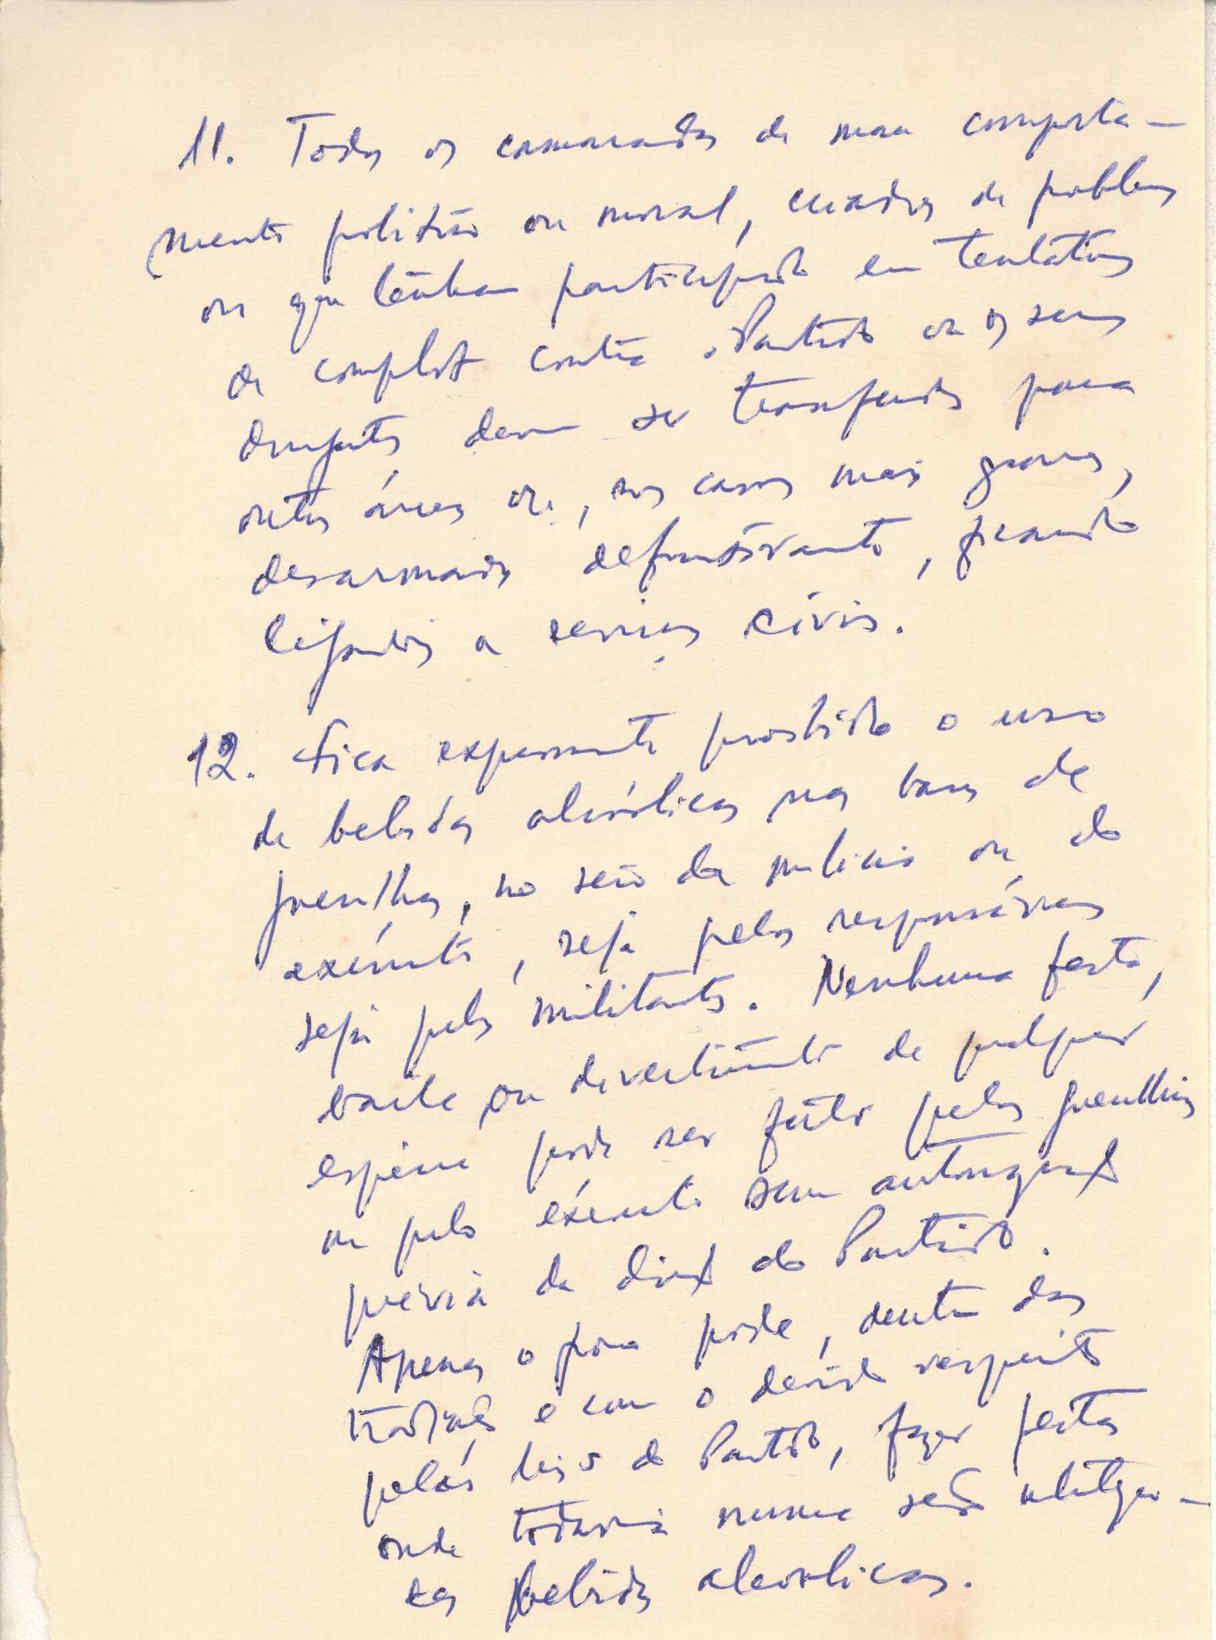 11. Todos os camaradas de mau comporta-
mento político ou moral, criadores de problemas
ou que tenham participado em tentativas
de complot contra o Partido ou os seus
dirigentes devem ser transferidos para
outras áreas ou, nos casos mais graves,
desarmados definitivamente, ficando
ligados a serviços civis.
12. Fica expressamente proibido o uso
de bebidas alcoólicas nas bases de
guerrilhas, no seio da milícia ou do
exército, seja pelos responsáveis
seja pelos militantes. Nenhuma festa,
baile ou divertimento de qualquer
espécie pode ser feito pelos guerrilheiros
ou pelo exército sem autorização
prévia da direcção do Partido.
Apenas o povo pode, dentro das
tradições e com o devido respeito
pelas leis do Partido, fazer festas
onde todavia nunca serão utiliza-
das bebidas alcoólicas.